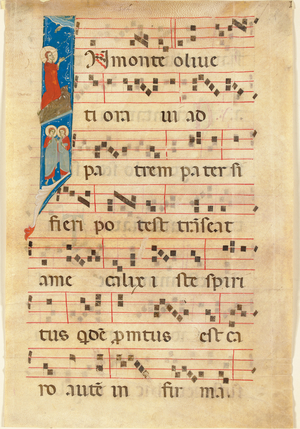 In monte olive
ti ora vi ad
pa trem pa ter si
fieri po test trãseat
ame calix i ste spiri
tus qdẽ ꝓmtus est ca
ro autẽ in fir ma.